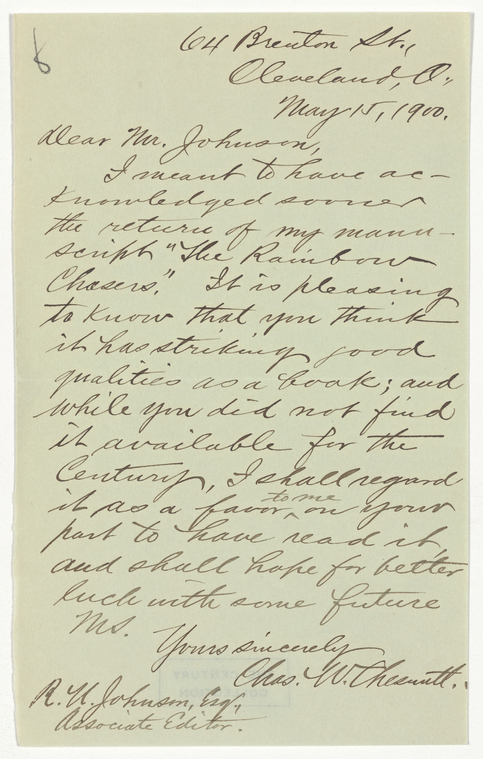 8
64 Brenton St.,
Cleveland, O.,
May 15, 1900.
Dear Mr. Johnson,
I meant to have ac-
knowledged sooner
the return of my manu-
script "The Rainbow
Chasers". It is pleasing
to know that you think
it has striking good
qualities as a book; and
while you did not find
it available for the
Century, I shall regard
it as a favor to me, on your
part to have read it,
and shall hope for better
luck with some future
MS.
Yours sincerely
Chas. W. Chesnutt.
R. U. Johnson, Esq.,
Associate Editor.
CENTURY
COLLECTION